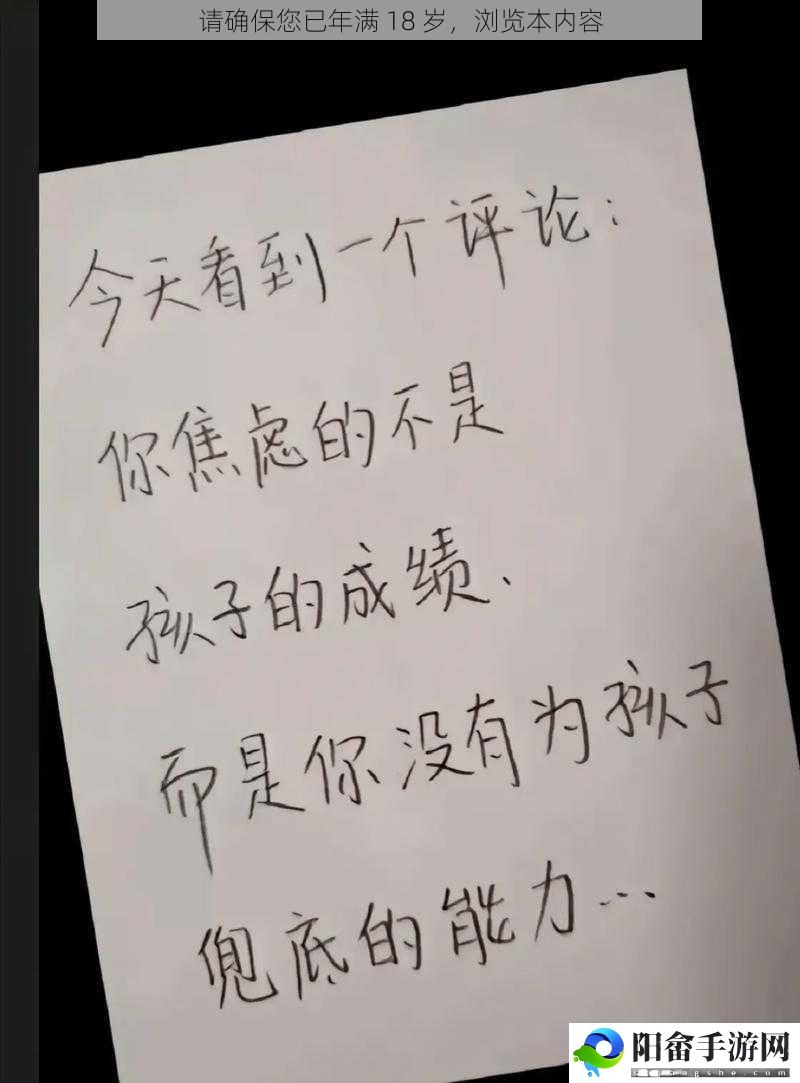 请确保您已年满 18 岁，浏览本内容
今天看到一个评论：
你焦虑的不是
孩子的成绩、
而是你没有为孩子
兜底的能力...
阳畲手游网